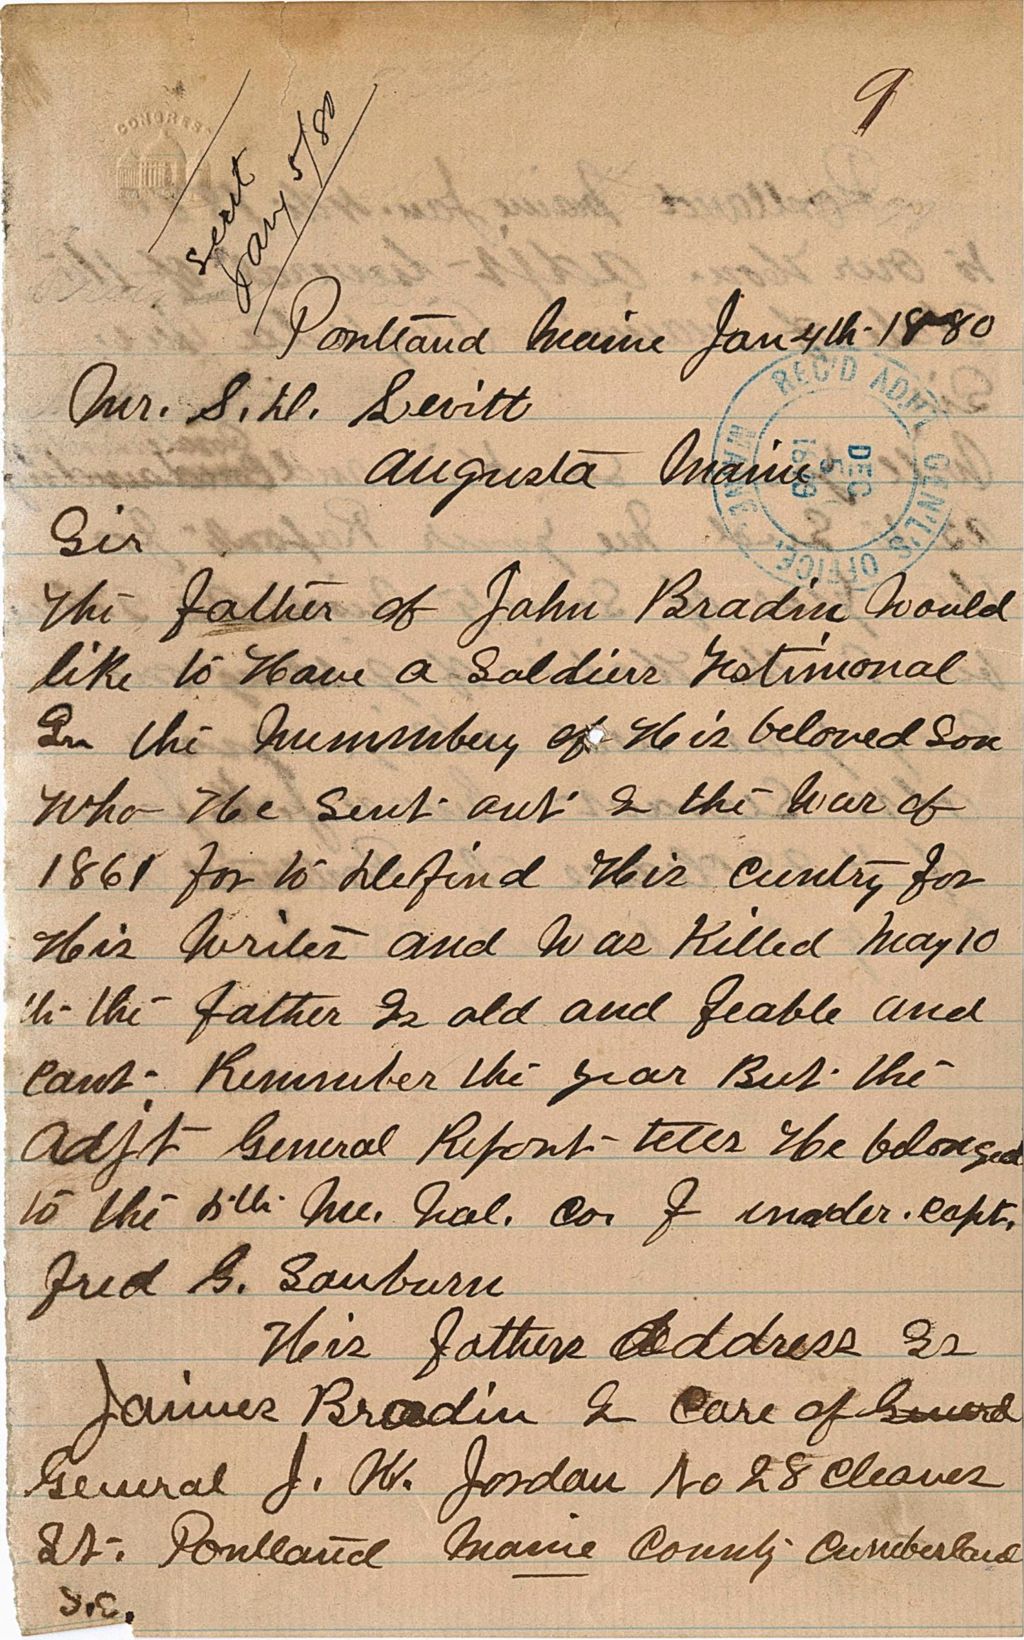 CONGRESS
9
Sent
Jany 5/80
Portland Maine Jan 4th 1880
Mr. S. D. Levitt
Augusta Maine
REC'D ADJT. GEN'L'S OFFICE, MAINE
DEC
5
Sir
The Father of John Bradin Would
like to Have a Soldiers Testimonal
In the Mummbery of His beloved Son
Who He Sent out I the War of
1861 for to Defind His Cuntry for
His Writes and Was Killed May 10
th the father Is old and Feable and
Cant Remmber the year But the
Adjt General Report teles He belonged
to the 5th Me. Bat. Co. F under Capt.
Fred G. Sanburn
His Fathers Address Is
Jaimes Bradin I Care of
General J. W. Jordan No 28 Cleaves
St. Portland Maine County Cumberland